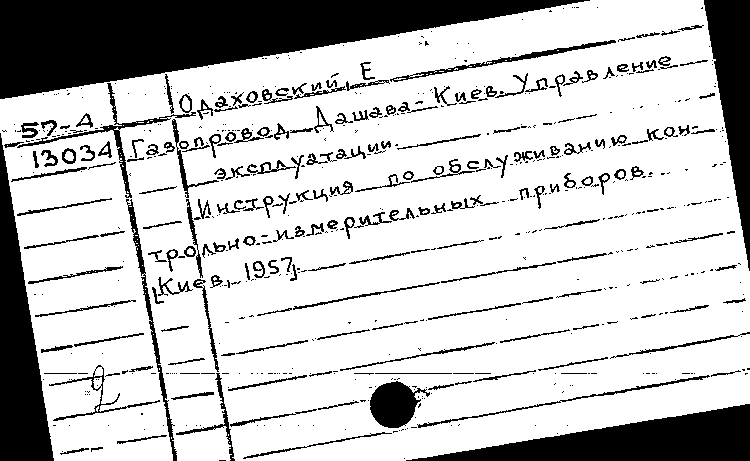 Одаховский, Е
57-А
13034
Газопровод Дашава-Киев. Управление
эксплуатации.
Инструкция по обслуживанию кон-
трольно-измерительных приборов.
[Киев, 1957].